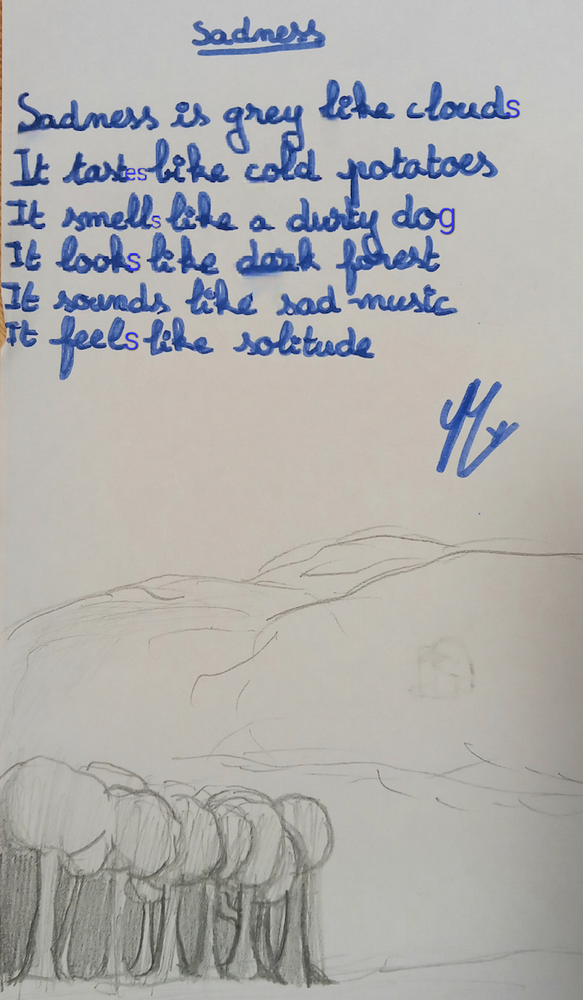 Sadness
Sadness is grey like clouds
It tastes like cold potatoes
It smells like a durty dog
It looks like dark forest
It sounds like sad music
It feels like solitude